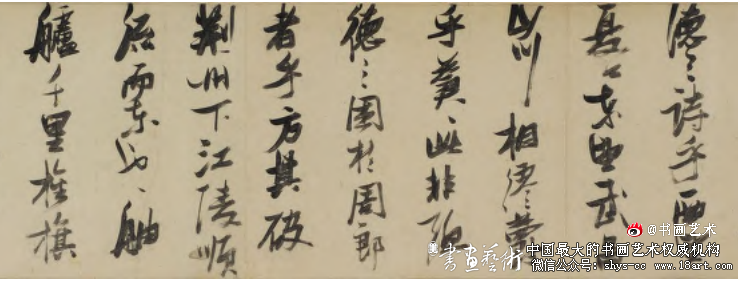 德之詩乎西
夏口東望武昌
山川相繆鬱
乎蒼〻此非孟
德之困於周郎
者乎方其破
荊州下江陵順
流而東也舳
艫千里旌旗
@书画艺术
書畫藝術
中国最大的书画艺术权威机构
微信公众号：shys-cc www.18art.com